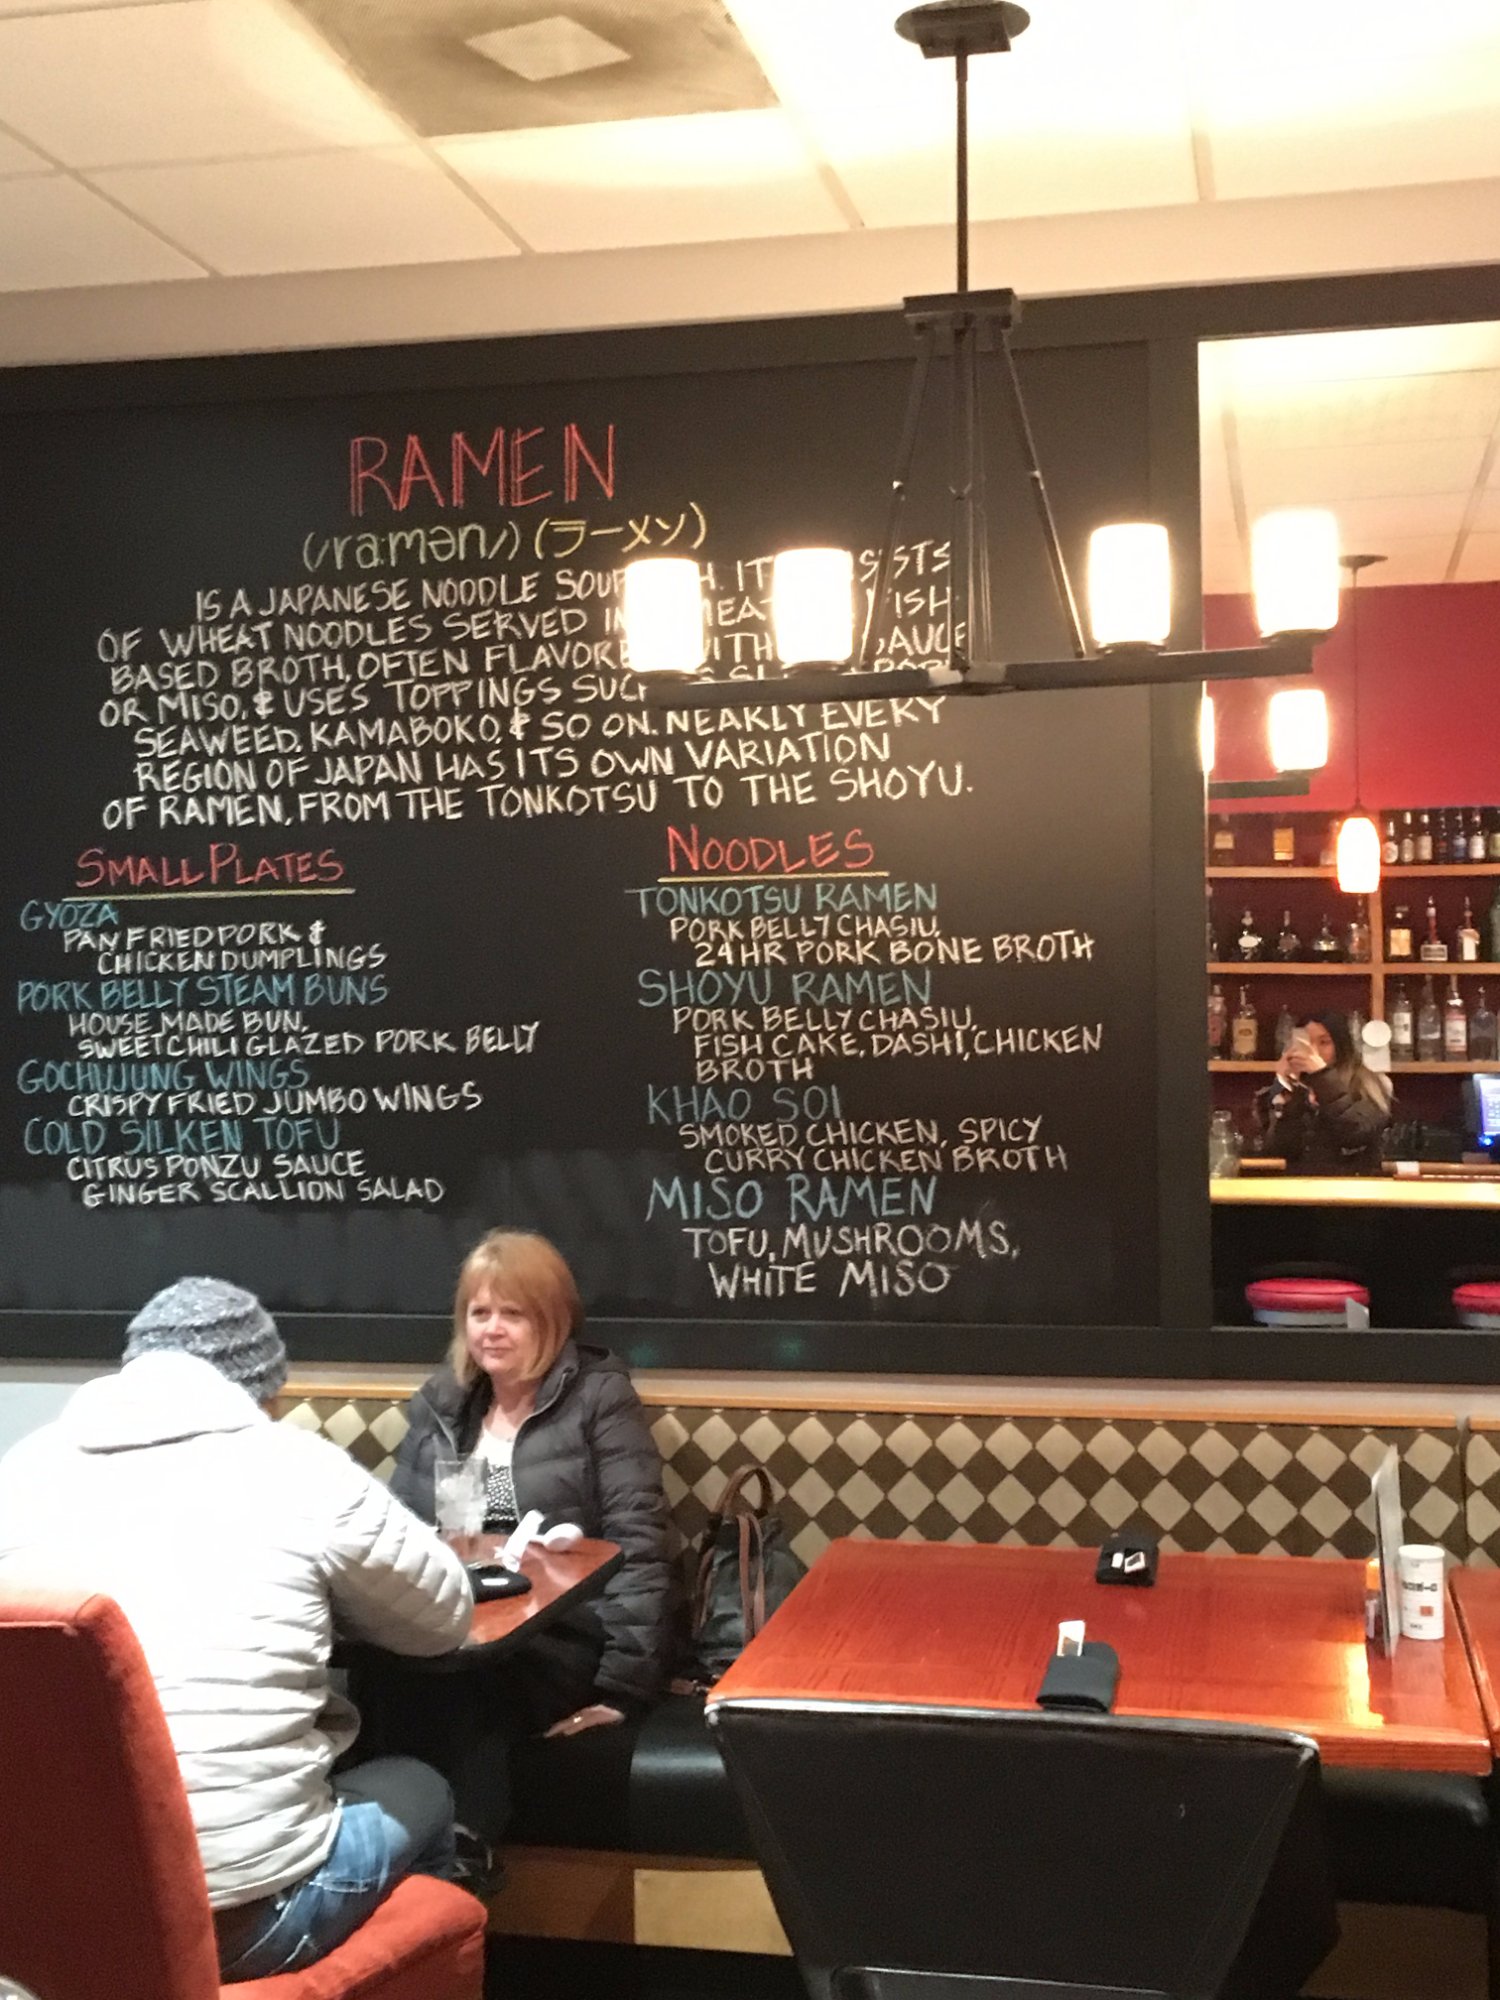 RAMEN
(/ra:mən/) (ラーメン)
IS A JAPANESE NOODLE SOUP IT
OF WHEAT NOODLES SERVED IN
BASED BROTH, OFTEN FLAVORED
OR MISO, & USES TOPPINGS SUCH
SEAWEED, KAMABOKO, & SO ON. NEARLY EVERY
REGION OF JAPAN HAS ITS OWN VARIATION
OF RAMEN, FROM THE TONKOTSU TO THE SHOYU.
SMALL PLATES
GYOZA
PAN FRIED PORK &
CHICKEN DUMPLINGS
PORK BELLY STEAM BUNS
HOUSE MADE BUN,
SWEET CHILI GLAZED PORK BELLY
GOCHUJUNG WINGS
CRISPY FRIED JUMBO WINGS
COLD SILKEN TOFU
CITRUS PONZU SAUCE
GINGER SCALLION SALAD
NOODLES
TONKOTSU RAMEN
PORK BELLY CHASIU,
24 HR PORK BONE BROTH
SHOYU RAMEN
PORK BELLY CHASIU,
FISH CAKE, DASHI, CHICKEN
BROTH
KHAO SOI
SMOKED CHICKEN, SPICY
CURRY CHICKEN BROTH
MISO RAMEN
TOFU, MUSHROOMS,
WHITE MISO